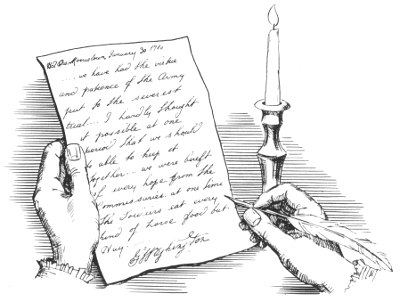 Hd Qrs Morristown, January 30 1780
.... we have had the virtue
and patience of the Army
put to the severest
trial... I hardly thought
it possible at one
period that we should
be able to keep it
together... we were bereft
of every hope from the
commissaries. at one time
the Soldiers eat every
kind of horse food but
Hay.
G:Washington